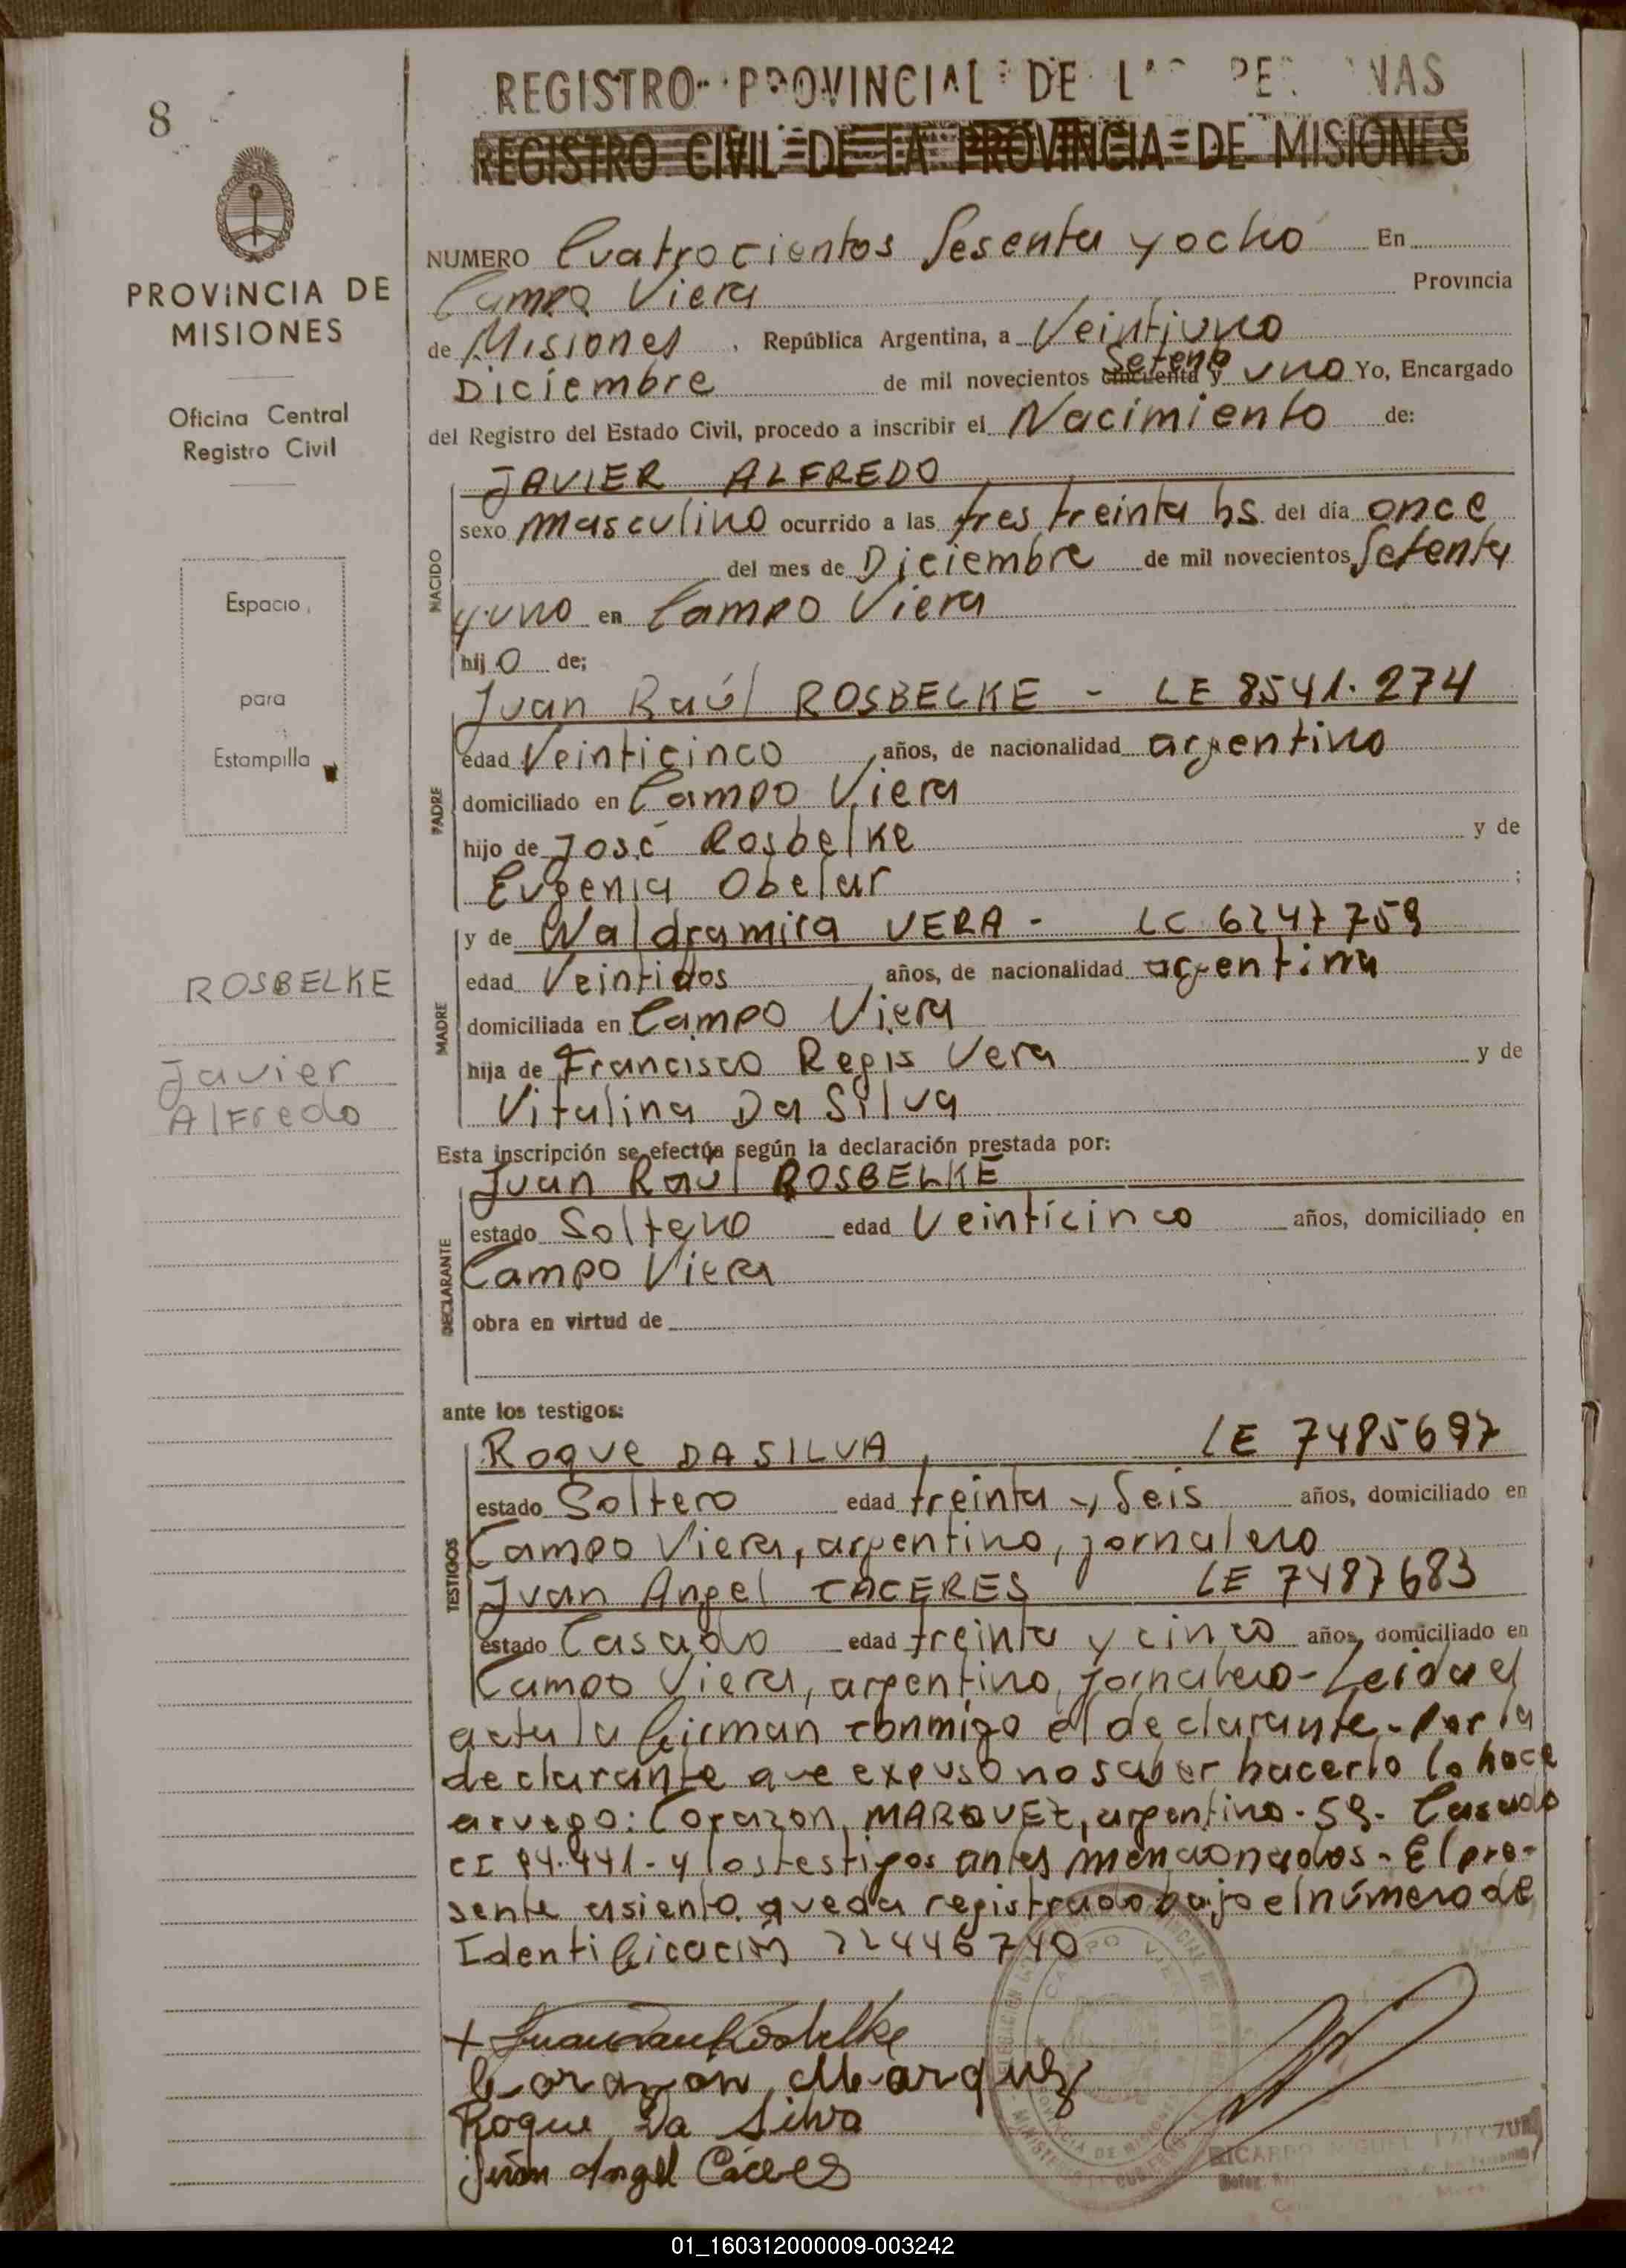 8
REGISTRO PROVINCIAL DE
REGISTRO CIVIL DE LA PROVINCIA DE MISIONES
PROVINCIA DE
MISIONES
Oficina Central
Registro Civil
Espacio
para
Estampilla
ROSBELKE
Javier
Alfredo
NUMERO Cuatrocientos Sesenta y ocho En
Campo Viera Provincia
de Misiones, República Argentina, a Veintiuno
Diciembre de mil novecientos cincuenta y Setenta uno Yo, Encargado
del Registro del Estado Civil, procedo a inscribir el Nacimiento de:
NACIDO
JAVIER ALFREDO
sexo masculino ocurrido a las tres treinta hs. del día once
del mes de Diciembre de mil novecientos Setenta
y uno en Campo Viera
hijo de;
PADRE
Juan Raúl ROSBELKE - LE 8541.274
edad Veinticinco, años, de nacionalidad argentino
domiciliado en Campo Viera
hijo de José Rosbelke y de
Eugenia Obelar ;
MADRE
y de Waldramira VERA - LC 6247759
edad Veintidos, años, de nacionalidad argentina
domiciliada en Campo Viera
hija de Francisco Regis Vera y de
Vitalina Da Silva
Esta inscripción se efectúa según la declaración prestada por:
DECLARANTE
Juan Raúl ROSBELKE
estado Soltero edad Veinticinco años, domiciliado en
Campo Viera
obra en virtud de
ante los testigos:
TESTIGOS
Roque DA SILVA, LE 7485697
estado Soltero edad treinta y Seis años, domiciliado en
Campo Viera, argentino, jornalero
Juan Angel CACERES LE 7487683
estado Casado edad treinta y cinco años, domiciliado en
Campo Viera, argentino, jornalero - Leida el
acta la firman conmigo el declarante - Por la
declarante que expuso no saber hacerlo lo hace
a ruego: Corazon MARQUEZ, argentino - 59 - Casado
CI 94.441 - y los testigos antes mencionados - El pre-
sente asiento queda registrado bajo el número de
Identificación 22446740
+ Juan Raul Rosbelke
Corazon Marquez
Roque Da Silva
Juan Angel Cáceres
RICARDO MIGUEL
01_160312000009-003242